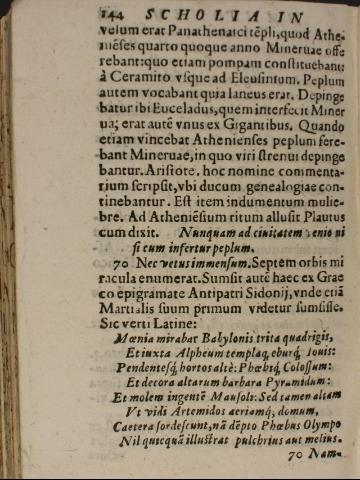 144 SCHOLIA IN
velum erat Panathenaici tēpli, quod Athe-
niēses quarto quoque anno Mineruae offe
rebant: quo etiam pompam constituebant:
à Ceramito vsque ad Eleusinium. Peplum
autem vocabant quia laneus erat. Depinge
batur ibi Euceladus, quem interfecit Miner
ua; erat autē vnus ex Gigantibus. Quando
etiam vincebat Athenienses peplum fere-
bant Mineruae, in quo viri strenui depinge
bantur. Aristote. hoc nomine commenta-
rium scripsit, vbi ducum genealogiae con-
tinebantur. Est item indumentum mulie-
bre. Ad Atheniēsium ritum allusit Plautus
cum dixit. Nunquam ad ciuitatem venio ni
si cum infertur peplum.
70 Nec vetus immensum. Septem orbis mi
racula enumerat. Sumsit autē haec ex Grae
co epigramate Antipatri Sidonij, vnde etiā
Martialis suum primum videtur sumsisse.
Sic verti Latine:
Mœnia mirabar Babylonis trita quadrigis,
Et iuxta Alpheum templaq, eburq, Iouis:
Pendentesq, hortos altè: Phœbiq, Colossum:
Et decora altarum barbara Pyramidum:
Et molem ingentē Mausoli: Sed tamen altam
Vt vidi Artemidos aeriamq, domum,
Caetera sordescunt, nā dēpto Phœbus Olympo
Nil quicquā illustrat pulchrius aut melius.
70 Nam-